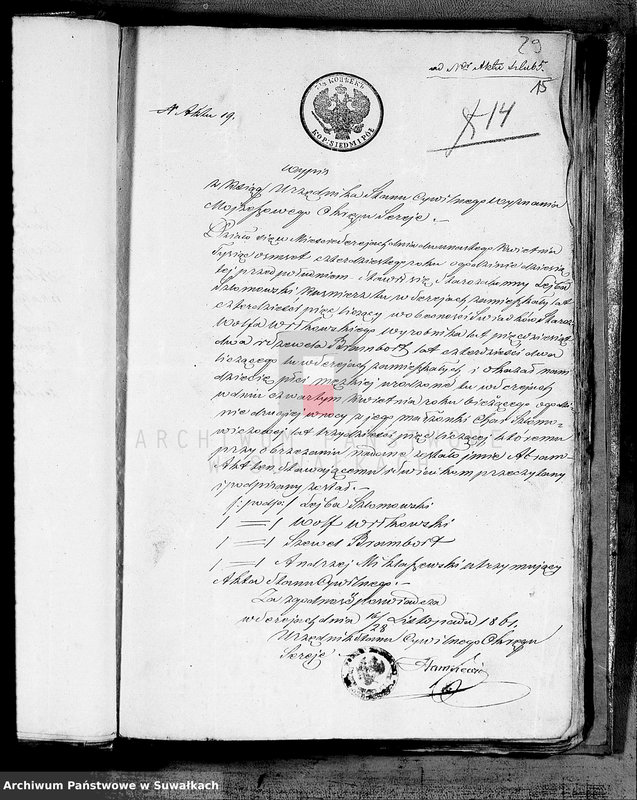 29
ad Nro Aktu ślub.
15
14
N Aktu 19.
7½ КОПѢЕКЪ
KOP. SIEDM I PÓŁ
Wypis
z Księgi Urzędnika Stanu Cywilnego Wyznania
Mojżeszowego Okręgu Sereje.
Działo się w Mieście Serejach dnia dwunastego Kwietnia
Tysiąc osmset czterdziestego roku o godzinie dziesią
tej przed południem. Stawił się Starozakonny Lejba
Szlomowski, w Serejach zamieszkały lat
czterdzieści pięć liczący w obecności świadków Staroz.
Wolfa Witkowskiego Wyrobnika lat pięćdziesiąt
dwa i Szewela Brambort lat czterdzieści dwa
liczącego tu w Serejach zamieszkałych i okazał nam
dziecię płci męzkiej urodzone tu w Serejach
w dniu czwartym Kwietnia roku bieżącego o godzi-
nie drugiej w nocy z jego małżonki Chai Szlomo-
wiczowej lat trzydzieści pięć liczącej, któremu
przy obrzezaniu nadane zostało imie Abram
Akt ten stawającemu i świadkom przeczytany
i podpisany został.
/:podp:/ Lejba Szlomowski
/ = / Wolf Witkowski
/ = / Szewel Brambort
/ = / Andrzej Mikłaszewski utrzymujący
Akta Stanu Cywilnego.
Za zgodność poświadcza
w Serejach dnia 16/28 Listopada 1861.
Urzędnik Stanu Cywilnego Okręgu
Sereje
ARCHIWUM PAŃSTWOWE
W SUWAŁKACH
Archiwum Państwowe w Suwałkach